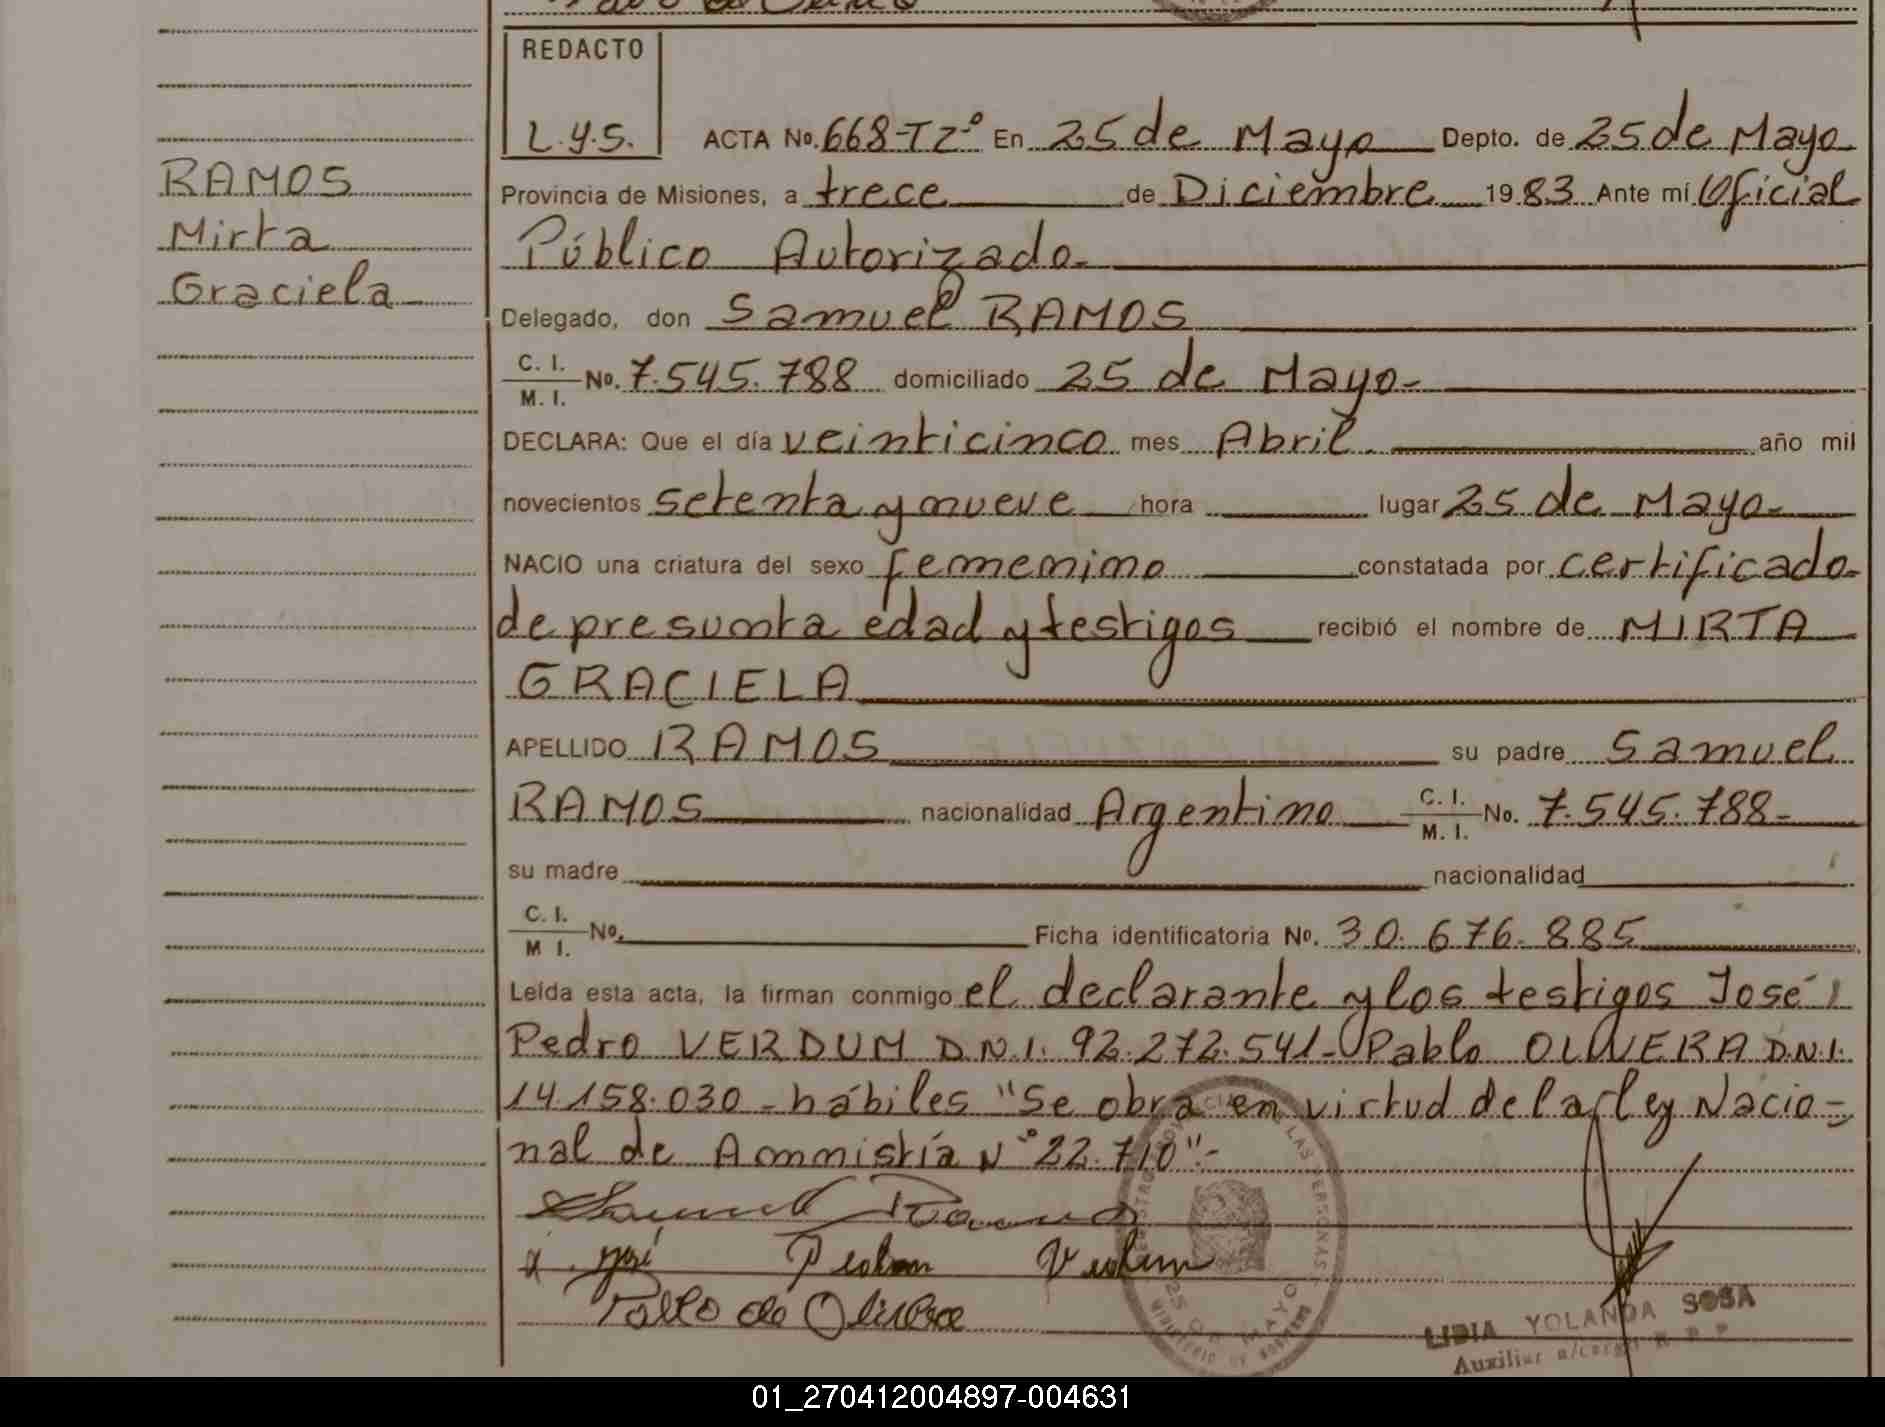 REDACTO
L.Y.S.
ACTA No. 668-T2-º En 25 de Mayo Depto. de 25 de Mayo
RAMOS
Mirta
Graciela
Provincia de Misiones, a trece de Diciembre 1983 Ante mí Oficial
Público Autorizado-
Delegado, don Samuel RAMOS
C. I.
M. I. No. 7.545.788 domiciliado 25 de Mayo-
DECLARA: Que el día veinticinco mes Abril. año mil
novecientos setenta y nueve hora lugar 25 de Mayo-
NACIO una criatura del sexo femenino constatada por certificado
de presunta edad y testigos recibió el nombre de MIRTA
GRACIELA
APELLIDO RAMOS su padre Samuel
RAMOS nacionalidad Argentino C. I.
M. I. No. 7.545.788-
su madre nacionalidad
C. I.
M I. No. Ficha identificatoria No. 30.676.885
Leída esta acta, la firman conmigo el declarante y los testigos José
Pedro VERDUM D.N.I. 92.272.541- Pablo OLIVERA D.N.I.
14.158.030 - hábiles "Se obra en virtud de la ley Nacio-
nal de Ammistía Nº 22.710".-
Samuel Ramos
José Pedro
Pablo de Olivera
25 DE MAYO
MINISTERIO DE GOBIERNO
LIDIA YOLANDA SOSA
Auxiliar a/cargo R. P. P
01_270412004897-004631